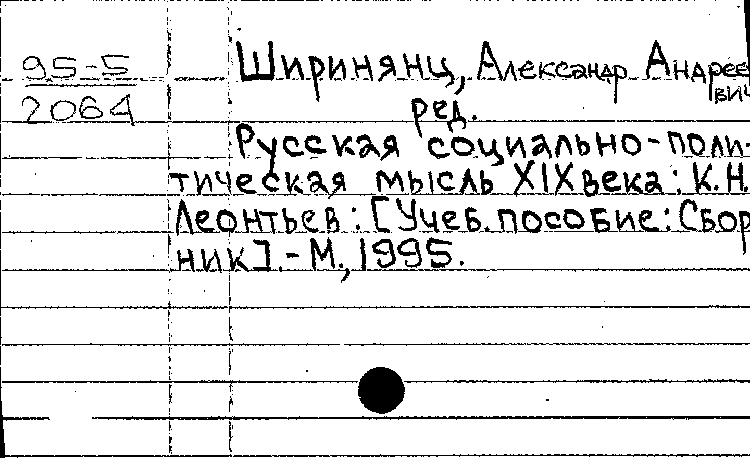 95-5
2064
Ширинянц, Александр Андрее
вич
ред.
Русская социально-поли-
тическая мысль XIX века: К.Н.
Леонтьев: [Учеб. пособие: Сбор
ник]. - М., 1995.